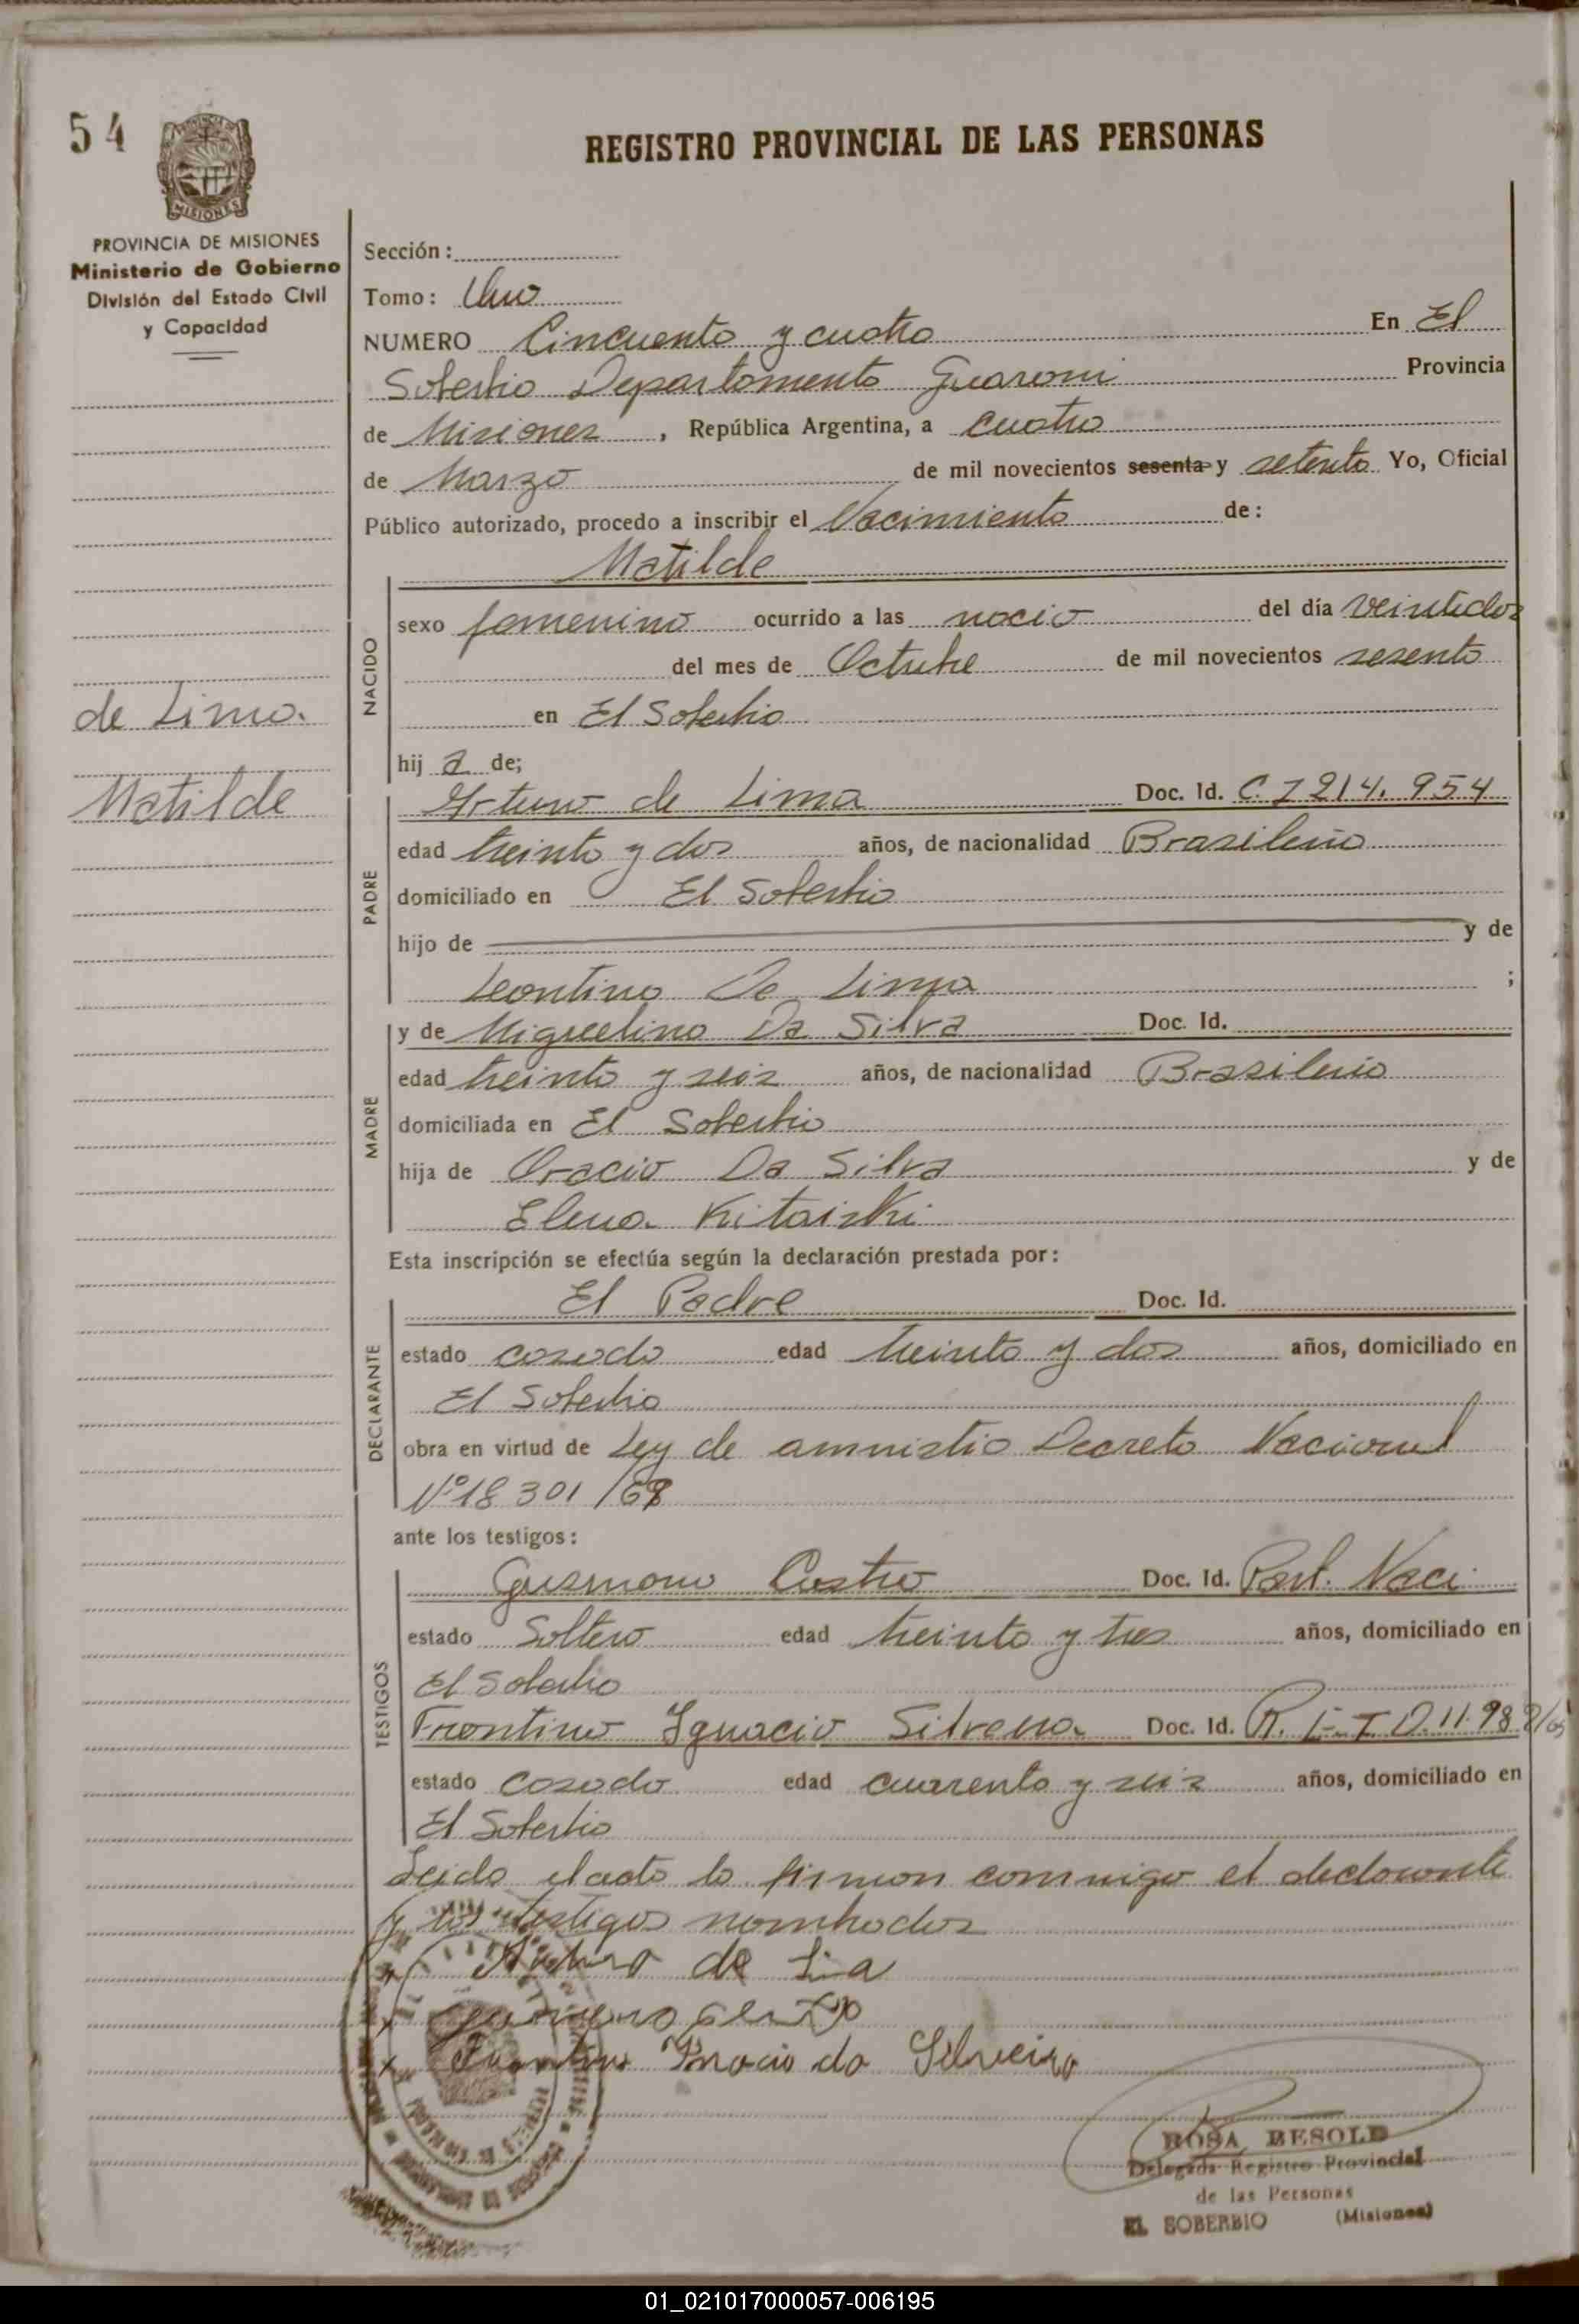 54
REGISTRO PROVINCIAL DE LAS PERSONAS
PROVINCIA DE MISIONES
MISIONES
PROVINCIA DE MISIONES
Ministerio de Gobierno
División del Estado Civil
y Capacidad
de Lima.
Matilde
Sección :
Tomo : Uno
NUMERO Cincuenta y cuatro En El
Soberbio Departamento Guarani Provincia
de Misiones , República Argentina, a cuatro
de Marzo de mil novecientos sesenta y setenta Yo, Oficial
Público autorizado, procedo a inscribir el Nacimiento de :
Matilde
NACIDO
sexo femenino ocurrido a las nació del día veintidos
del mes de Octubre de mil novecientos sesenta
en El Soberbio
hij a de;
PADRE
Arturo de Lima Doc. Id. C. I 214. 954
edad treinta y dos años, de nacionalidad Brasileña
domiciliado en El Soberbio
hijo de y de
Leontina De Lima ;
MADRE
y de Miguelina Da Silva Doc. Id.
edad treinta y seis años, de nacionalidad Brasileña
domiciliada en El Soberbio
hija de Oracio Da Silva y de
Elena Kitaiski
Esta inscripción se efectúa según la declaración prestada por :
DECLARANTE
El Padre Doc. Id.
estado casado edad treinta y dos años, domiciliado en
El Soberbio
obra en virtud de Ley de amnistia Decreto Nacional
Nº 18 301 /69
ante los testigos :
TESTIGOS
Gusmano Castro Doc. Id. Part. Naci.
estado Soltero edad treinta y tres años, domiciliado en
El Soberbio
Frontino Ignacio Silvena Doc. Id.
estado casado edad cuarenta y seis años, domiciliado en
El Soberbio
Leida el acta la firman conmigo el declarante
y los testigos nombados
Arturo de Lia
Ignacio da Silveira
ROSA BESOLD
Delegada Registro Provincial
de las Personas
EL SOBERBIO (Misiones)
01_021017000057-006195